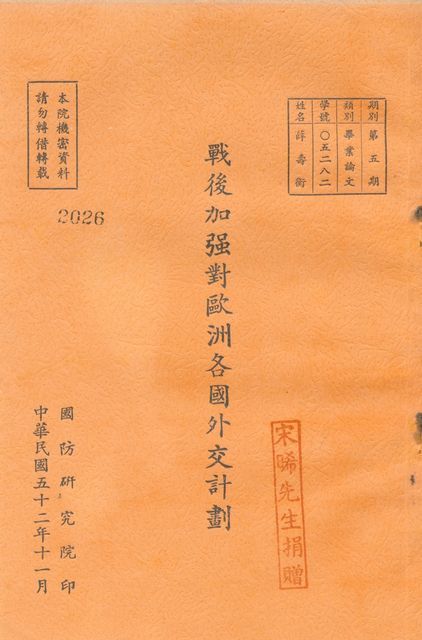 期別 第五期
類別 畢業論文
學號 〇五二八二
姓名 薛壽衡
戰後加强對歐洲各國外交計劃
宋晞先生捐贈
本院機密資料
請勿轉借轉載
2026
國防研究院印
中華民國五十二年十一月